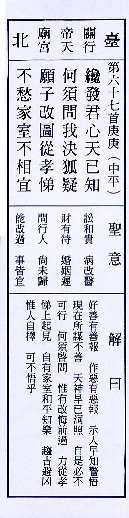 臺北
關行
帝天
廟宮
第六十七首庚庚（中平）
纔發君心天已知
何須問我決狐疑
願子改圖從孝悌
不愁家室不相宜
聖意
訟和貴　病改醫
財有待　婚姻遲
問行人　尚未歸
能改過　事皆宜
解曰
好善有善報　作惡有惡報　示人早知警悟
現在所謀不善　天神早已洞照　自是必不
可行　何須啓問　惟有改悔前過　力從孝
悌上起見　自有家室和平知樂　趨吉避凶
惟人自擇　可不悟乎